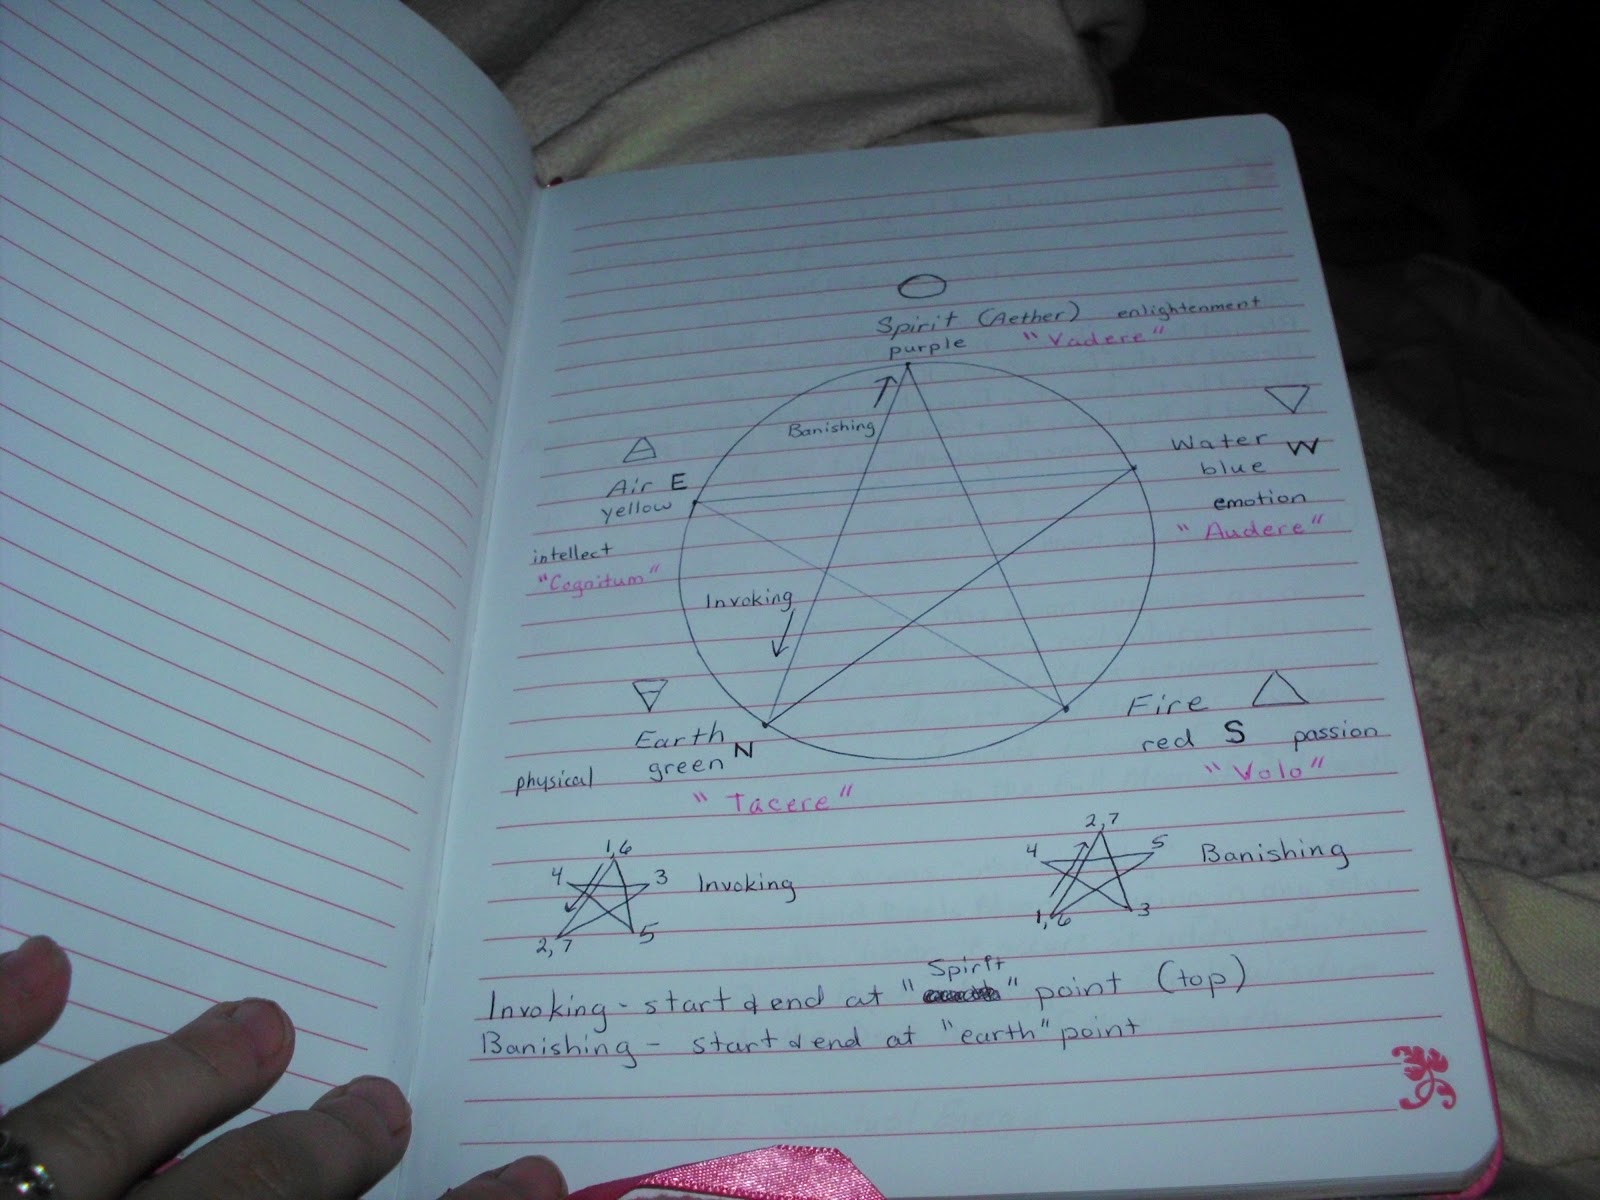 Spirit (Aether) enlightenment
purple "Vadere"
Banishing
Water W
blue
emotion
"Audere"
Air E
yellow
intellect
"Cognitum"
Invoking
Earth N
green
physical
"Tacere"
Fire
red S passion
"Volo"
1,6
4 3
2,7 5
Invoking
2,7
4 5
1,6 3
Banishing
Invoking - start & end at "Spirit" point (top)
Banishing - start & end at "earth" point